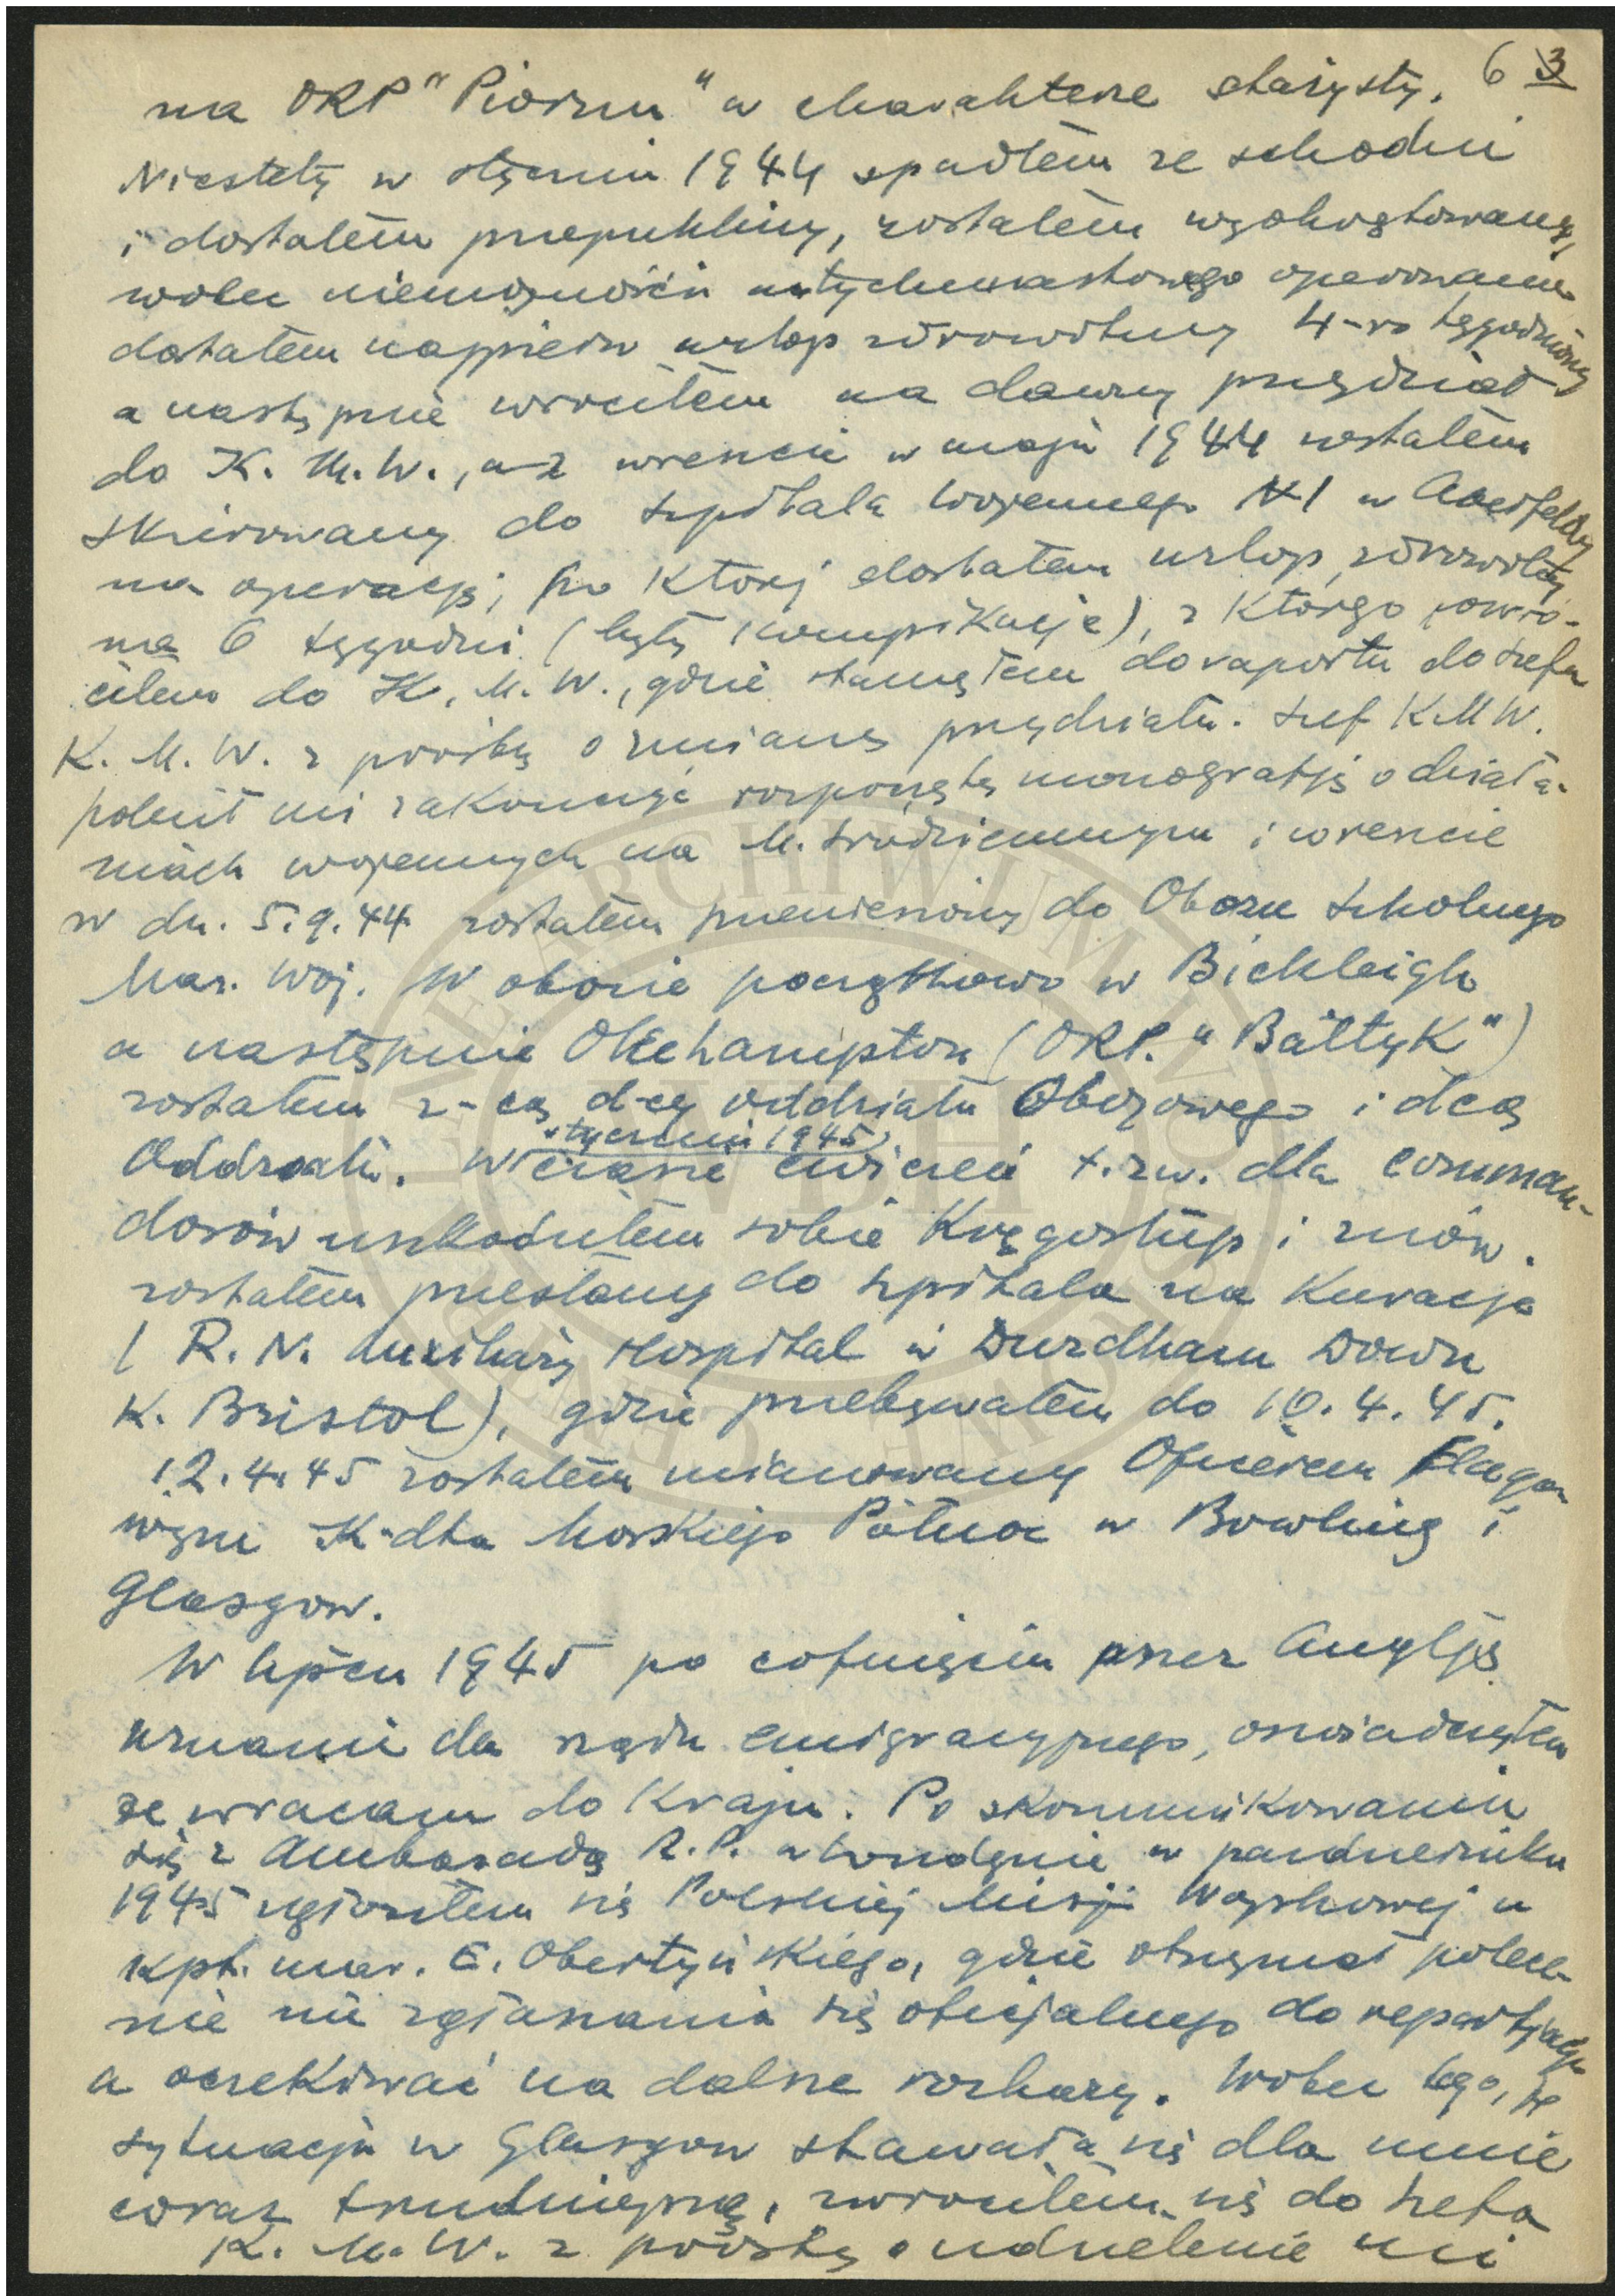 6 3
na ORP "Piorun" w charakterze stażysty.
Niestety w styczniu 1944 spadłem ze schodni
i dostałem przepukliny, zostałem wyokrętowany,
wobec niemożności natychmiastowego operowania
dostałem najpierw urlop zdrowotny 4-ro tygodniowy
a następnie wróciłem na dawny przydział
do K. M. W., aż wreszcie w maju 1944 zostałem
skierowany do szpitala Wojennego N1 w Aberfeldy
na operację, po której dostałem urlop zdrowotny
na 6 tygodni (były komplikacje), z którego powró-
ciłem do K. M. W., gdzie stanąłem do raportu do szefa
K. M. W. z prośbą o zmianę przydziału. Szef KMW.
polecił mi zakończyć rozpoczętą monografję o działa-
niach wojennych na M. Śródziemnym i wreszcie
w dn. 5.9.44 zostałem przeniesiony do Obozu Szkolnego
Mar. Woj. W obozie początkowo w Bickleigh
a następnie Okehampton (ORP. "Bałtyk")
zostałem z-cą d-cy oddziału Obozowego i dcą
styczniu 1945
Oddziału. W czasie ćwiczeń t.zw. dla comman-
dosów uszkodziłem sobie kręgosłup i znów
zostałem przesłany do szpitala na kurację
( R. N. Auxiliary Hospital w Durdham Down
k. Bristol), gdzie przebywałem do 10.4.45.
12.4.45 zostałem mianowany Oficerem Flago-
wym K-dta Morskiego Północ w Bowling i
Glasgow.
W lipcu 1945 po cofnięciu przez Anglję
uznania dla rządu emigracyjnego, oświadczyłem
że wracam do Kraju. Po skomunikowaniu
się z Ambasadą R.P. w Londynie w październiku
1945 zgłosiłem się Polskiej Misji Wojskowej u
kpt. mar. E. Obertyńskiego, gdzie otrzymał polece-
nie nie zgłaszania się oficjalnego do
a oczekiwać na dalsze rozkazy. Wobec tego, że
sytuacja w Glasgow stawała się dla mnie
coraz trudniejszą, zwróciłem się do szefa
K. M. W. z prośbą o udzielenie mi